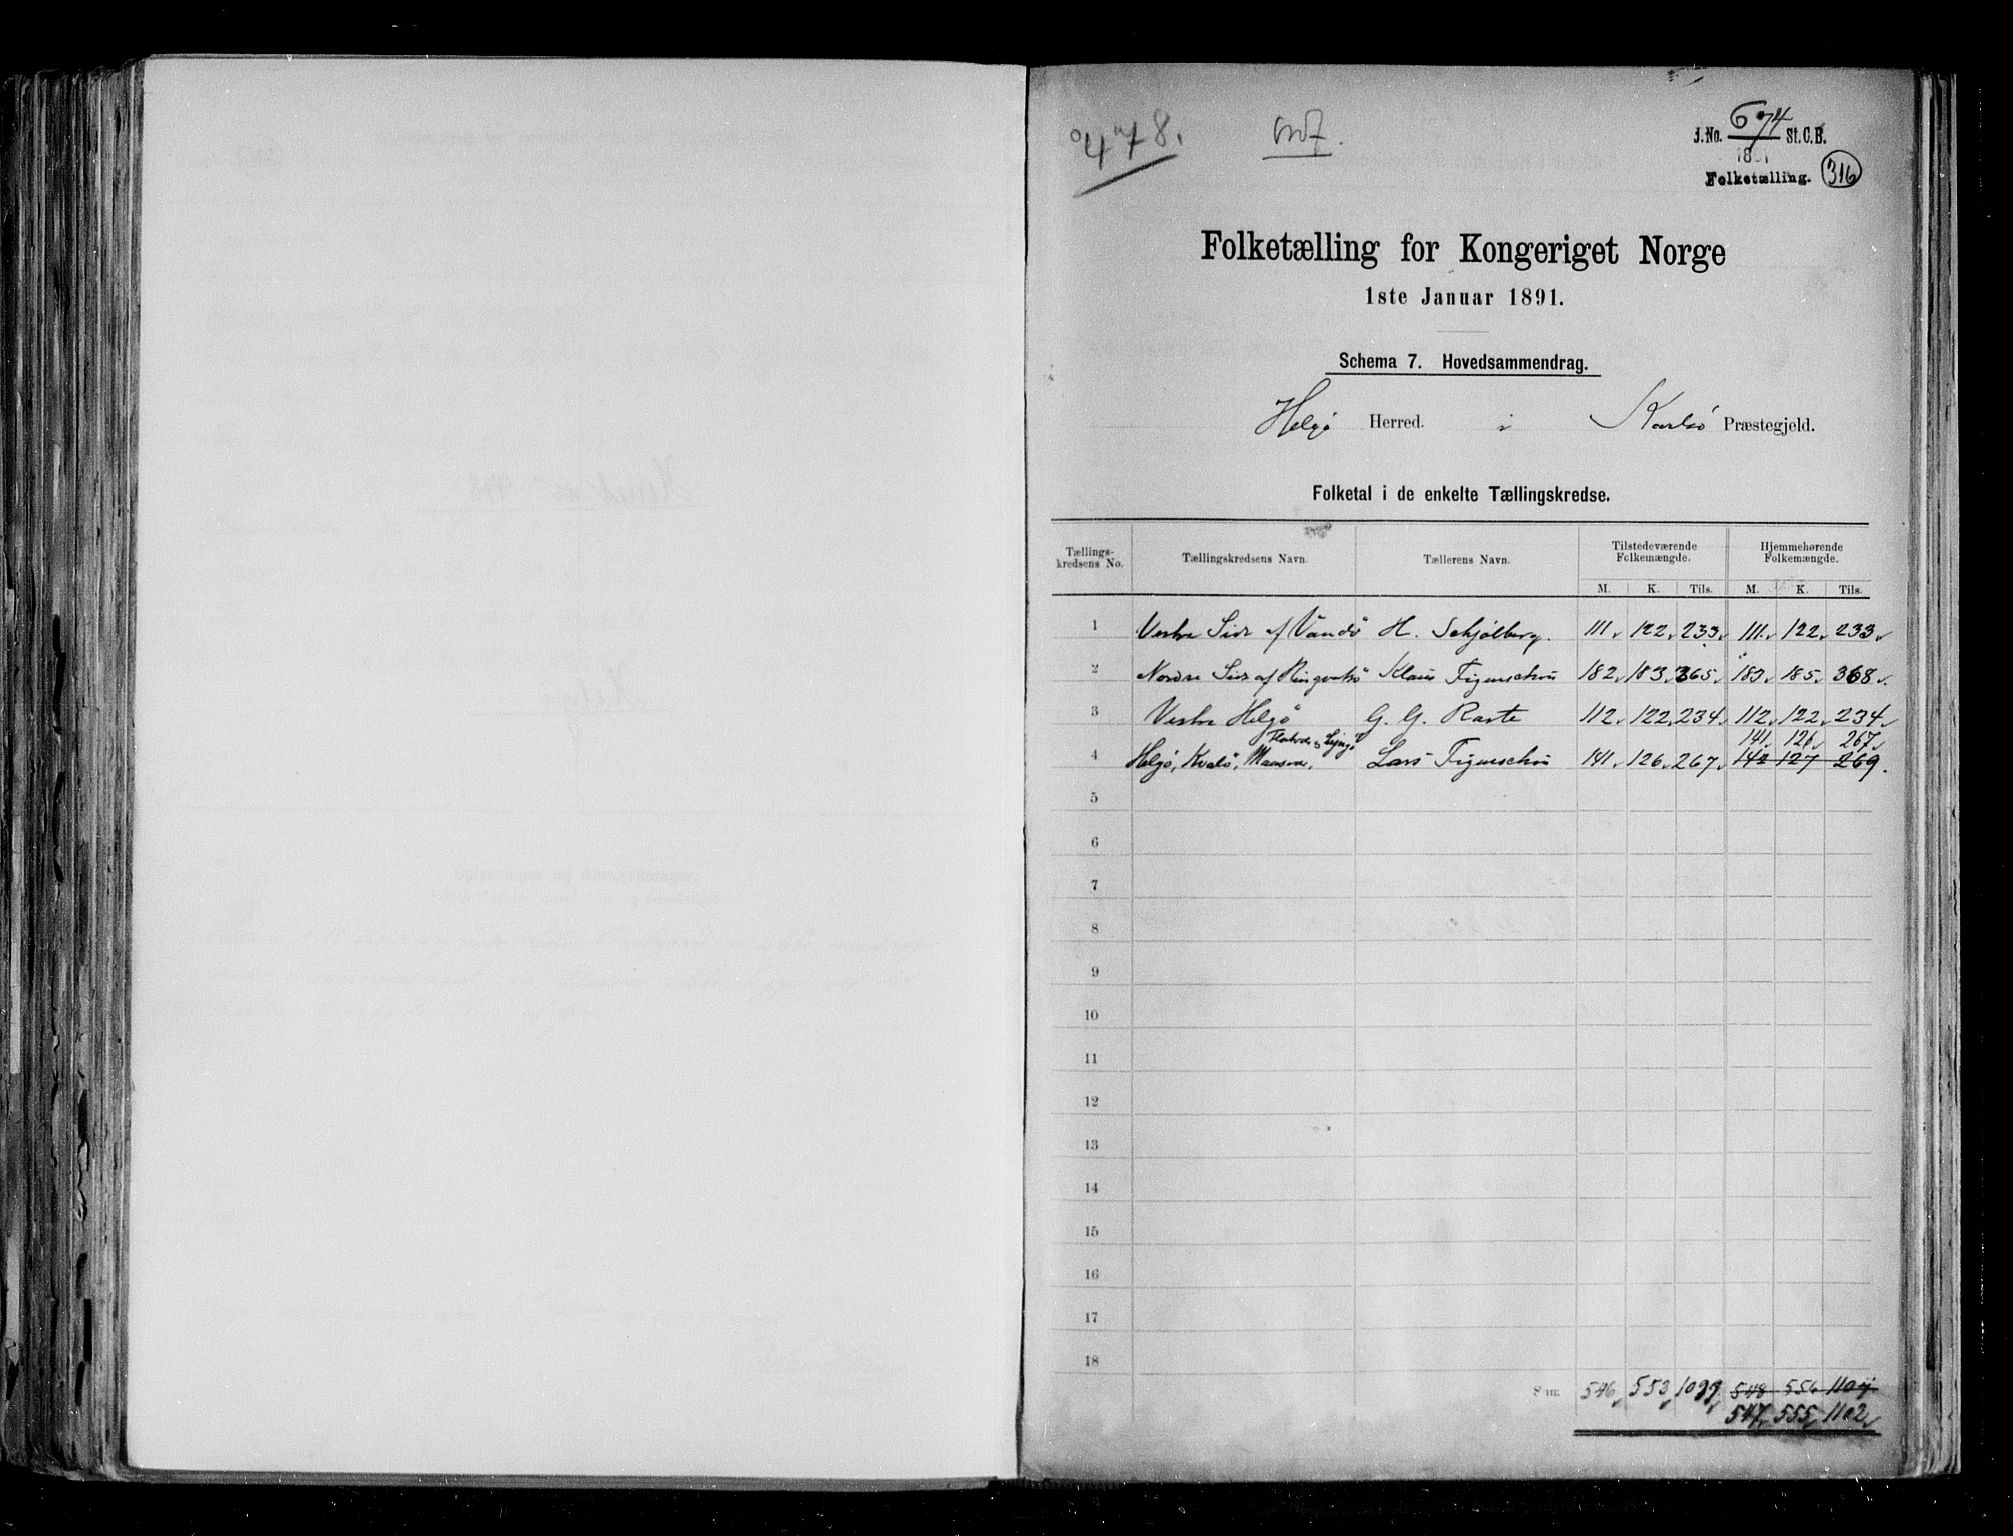 478.
J.No. 674 St.C.B.
1891
Folketælling. 316
Folketælling for Kongeriget Norge
1ste Januar 1891.
Schema 7. Hovedsammendrag.
Helgø Herred. i Karlsø Præstegjeld.
Folketal i de enkelte Tællingskredse.
Tællingskredsens No. Tællingskredsens Navn. Tællerens Navn. Tilstedeværende Folkemængde. Hjemmehørende Folkemængde.
M. K. Tils. M. K. Tils.
1 Vestre Side af Vandø H. Schjølberg. 111 122 233 111 122 233
2 Nordre Side af Ringvatsø Klaus Figenschou 182 183 365 183 185 368
3 Vestre Helgø G. G. Raste 112 122 234 112 122 234
141 126 267
4 Helgø, Kvalø, Maasvær, Lars Figenschou 141 126 267 142 127 269
5
6
7
8
9
10
11
12
13
14
15
16
17
18
Sum 546 553 1099 548 556 1104
547 555 1102